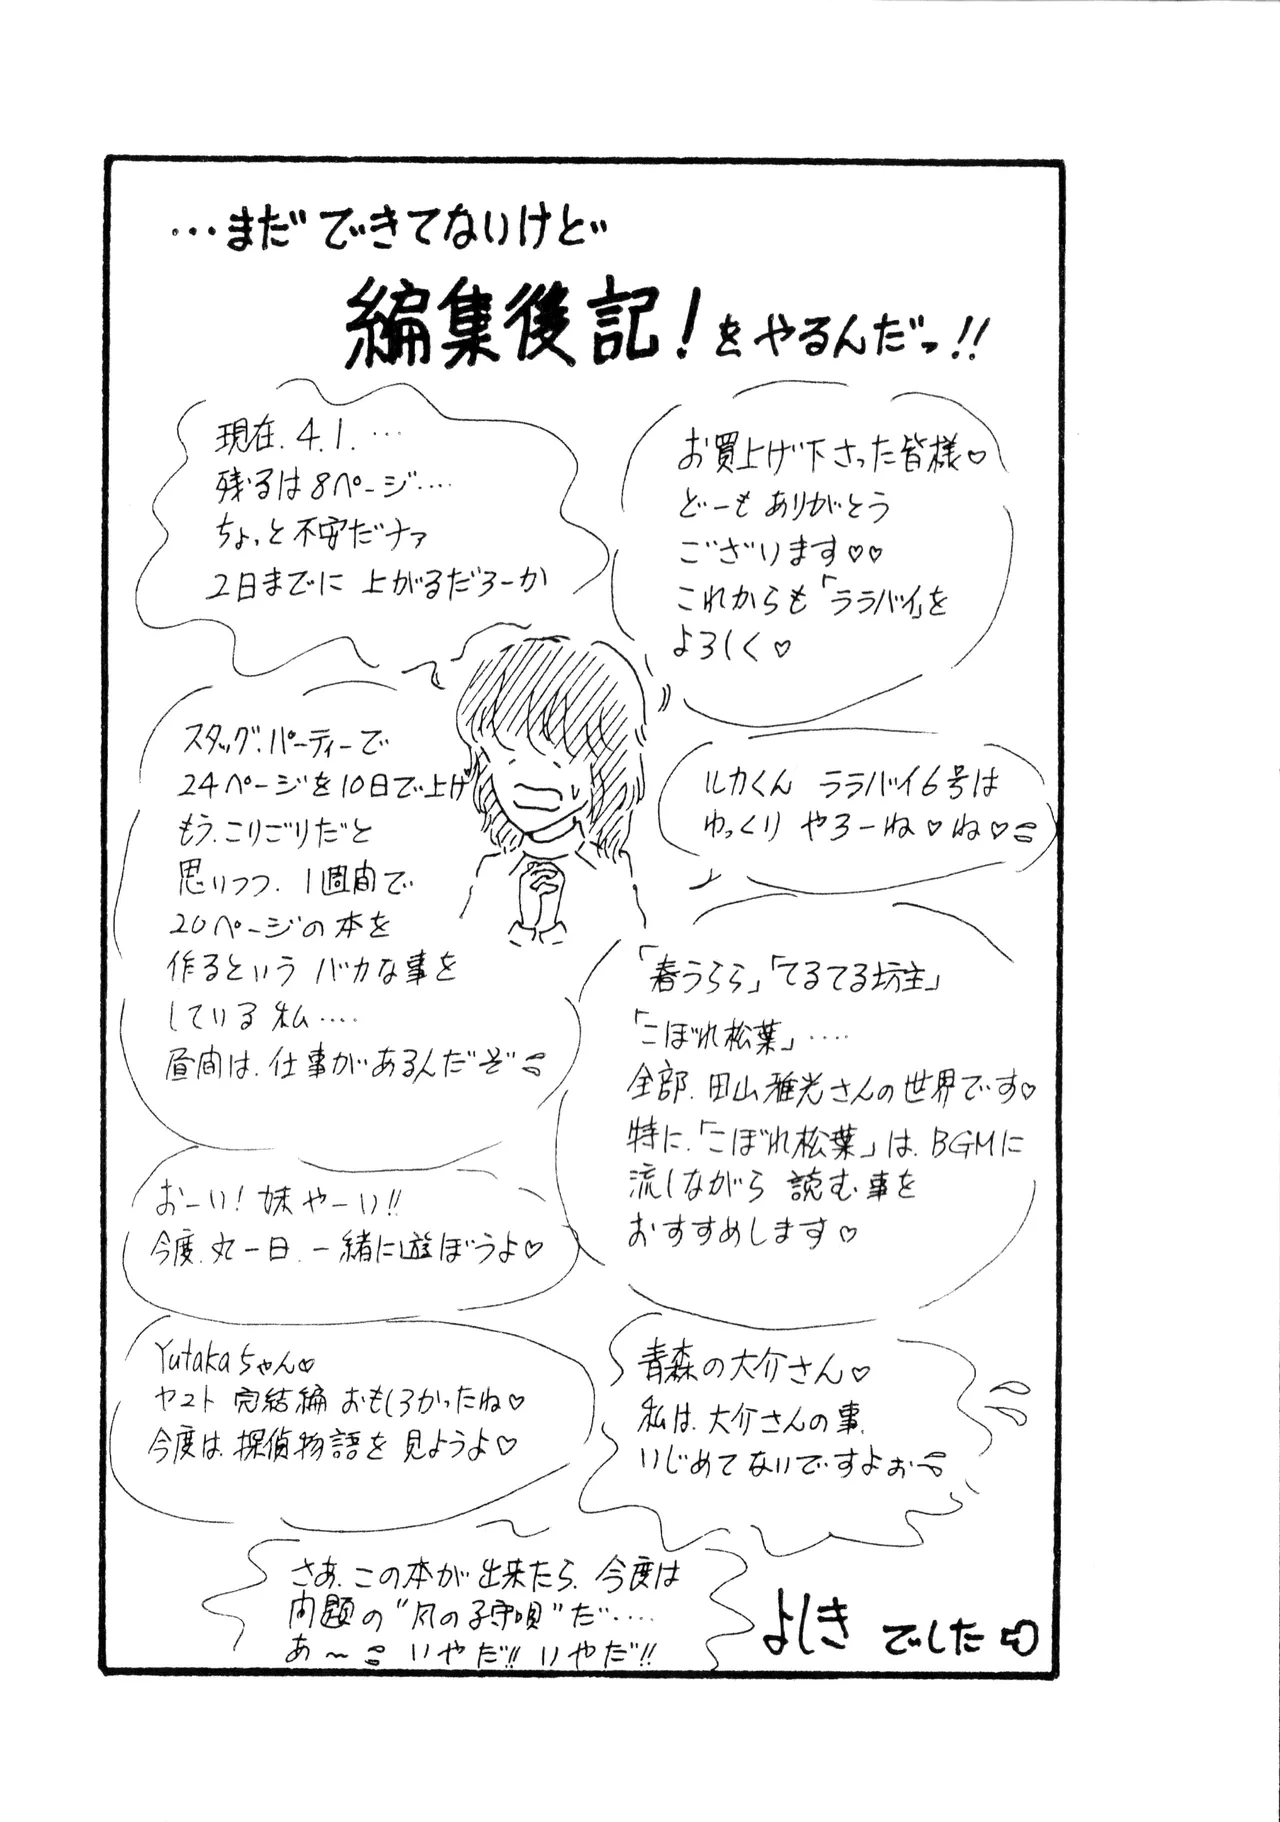 …まだできてないけど
編集後記!をやるんだっ!!
現在.4.1.…
残るは8ページ….
ちょっと不安だナァ
2日までに上がるだろーか
お買上げ下さった皆様♡
どーもありがとう
ございます♡♡
これからも「ララバイ」を
よろしく♡
スタッグ.パーティーで
24ページを10日で上げ
もう.こりごりだと
思いつつ.1週間で
20ページの本を
作るという バカな事を
している私….
昼間は.仕事があるんだぞ
ルカくん ララバイ6号は
ゆっくり やろーね♡ね♡
「春うらら」「てるてる坊主」
「こぼれ松葉」….
全部.田山雅光さんの世界です♡
特に.「こぼれ松葉」は.BGMに
流しながら 読む事を
おすすめします♡
おーい!妹やーい!!
今度.丸一日.一緒に遊ぼうよ♡
Yutakaちゃん♡
ヤヌト 完結編 おもしろかったね♡
今度は.探偵物語を 見ようよ♡
青森の大介さん♡
私は.大介さんの事.
いじめてないですよぉ
さあ.この本が出来たら.今度は
問題の"風の子守唄"だ….
あ〜 いやだ!!いやだ!!
よしき でした